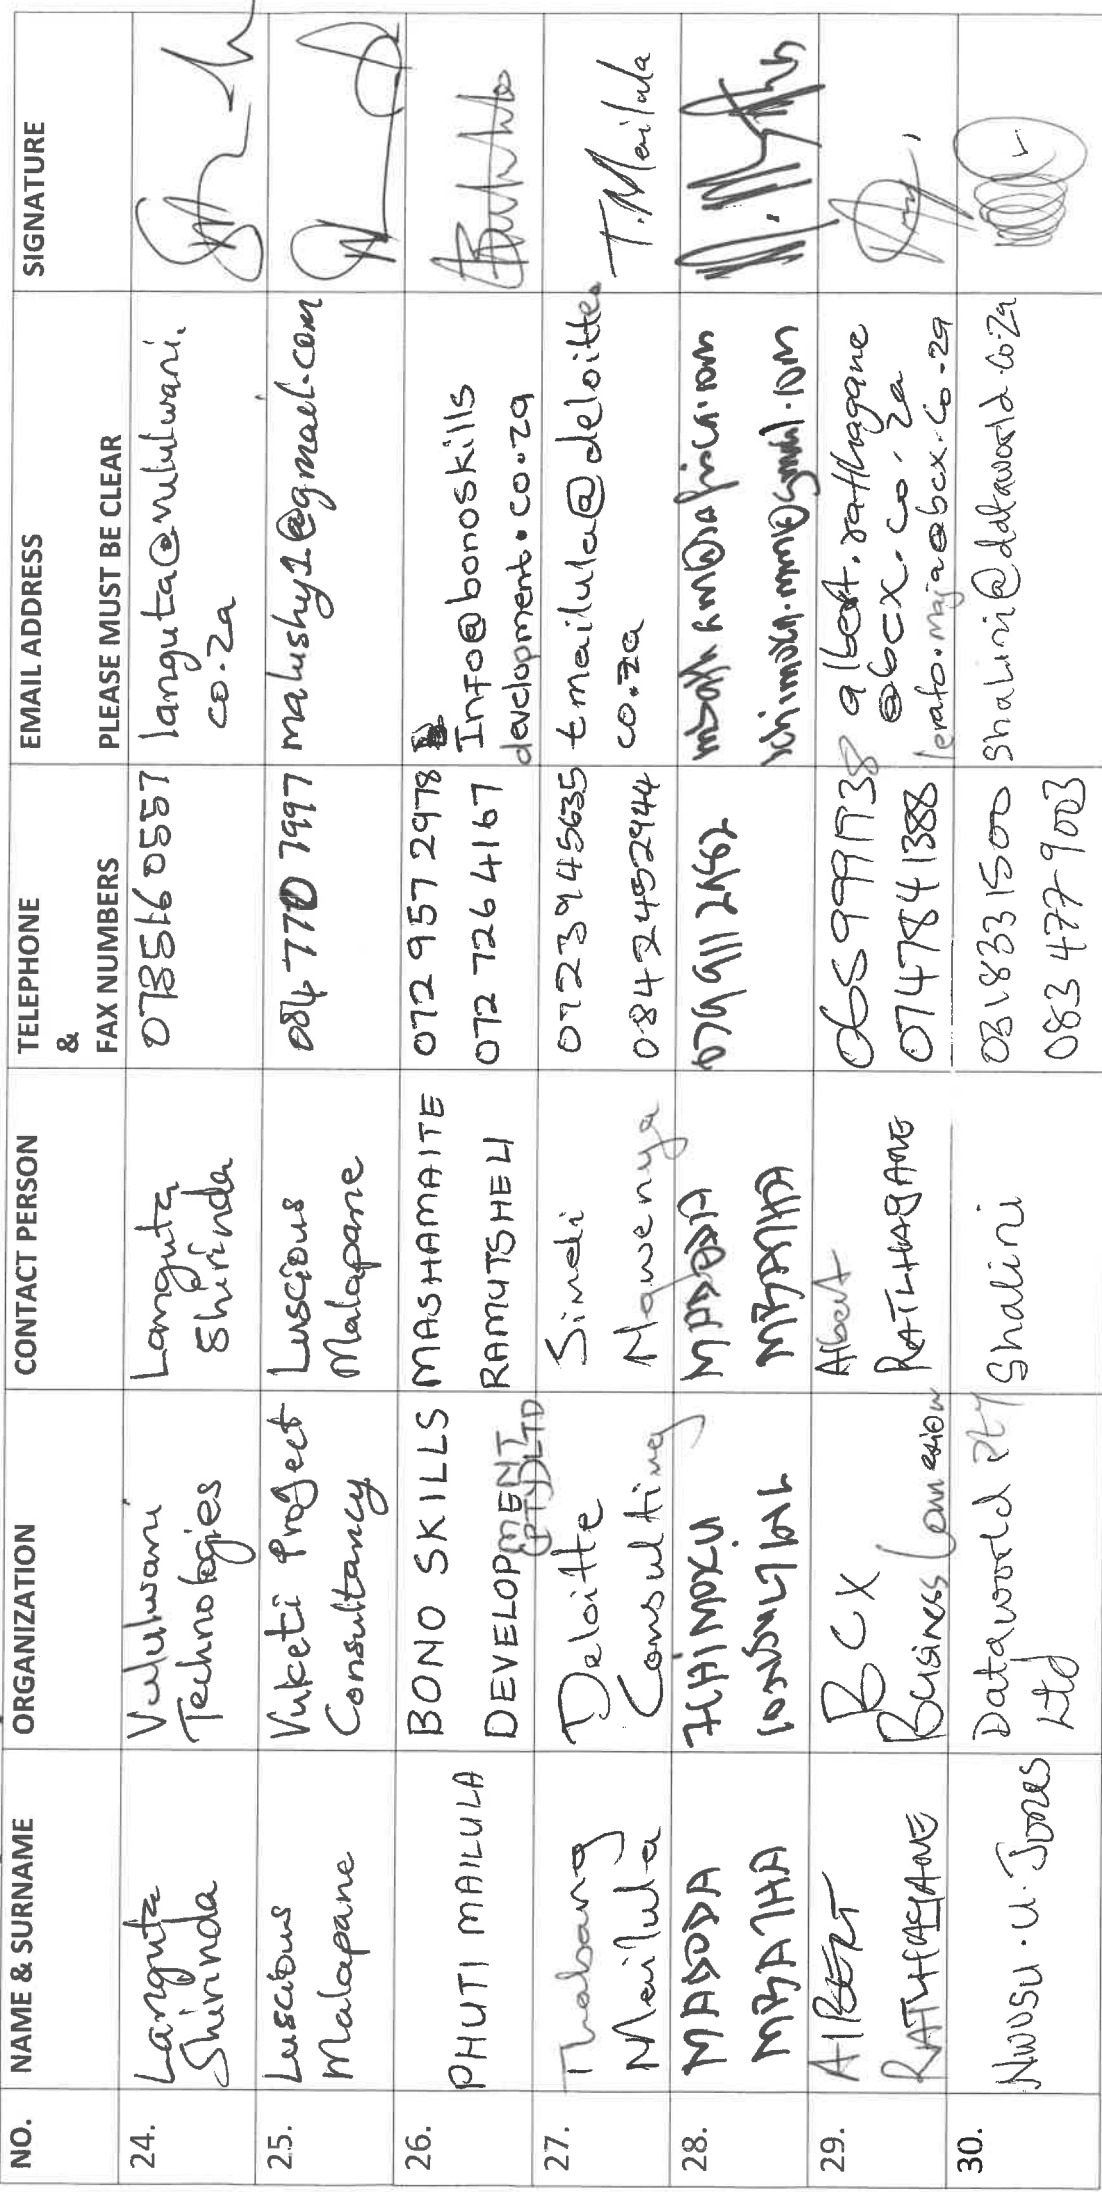 NO.
NAME & SURNAME
ORGANIZATION
CONTACT PERSON
TELEPHONE
&
FAX NUMBERS
EMAIL ADDRESS
PLEASE MUST BE CLEAR
SIGNATURE
24.
Languta
Shirinda
Vululwani
Technologies
Languta
Shirinda
0735160557
languta@vululwani.
co.za
25.
Luscious
Malapane
Vuketi Project
Consultancy
Luscious
Malapane
084 770 7997
malushy1@gmael.com
26.
PHUTI MAILULA
BONO SKILLS
DEVELOPMENT
(PTY)LTD
MASHAMAITE
RAMUTSHELI
072 957 2978
072 726 4167
Info@bonoskills
development.co.za
27.
Thabang
Mailula
Deloitte
Consulting
Simdi
Nqwenya
0723945635
0842452944
tmailula@deloitte.
co.za
T.Mailula
28.
MADODA
MBATHA
MADODA
MBATHA
29.
AlBERT
RATLHAGANE
BCX
Business
Albert
RATLHAGANE
0747841388
albert.ratlhagane
@bcx.co.za
lerato.maja@bcx.co.za
30.
Nwosu.U.Jones
Dataworld Pty
Ltd
Shalini
0318331500
083 477 9003
Shalini@dataworld.co.za